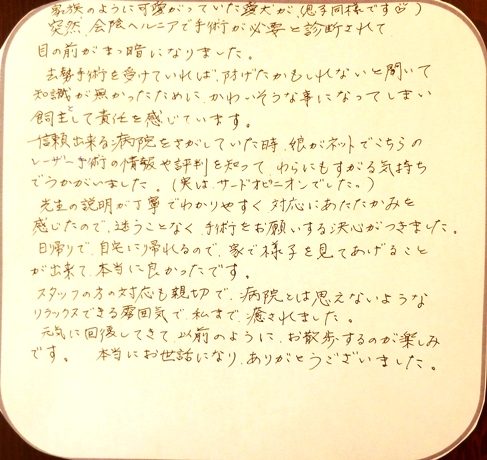 家族のように可愛がっていた愛犬が(息子同様です♡)
突然、会陰ヘルニアで手術が必要と診断されて
目の前がまっ暗になりました。
去勢手術を受けていれば、防げたかもしれないと聞いて
知識が無かったために、かわいそうな事になってしまい
飼主として責任を感じています。
信頼出来る病院をさがしていた時、娘がネットでこちらの
レーザー手術の情報や評判を知って、わらにもすがる気持ち
でうかがいました。(実は、サードオピニオンでした。)
先生の説明が丁寧でわかりやすく対応にあたたかみを
感じたので、迷うことなく手術をお願いする決心がつきました。
日帰りで、自宅に帰れるので、家で様子を見てあげること
が出来て、本当に良かったです。
スタッフの方の対応も親切で、病院とは思えないような
リラックスできる雰囲気で、私まで、癒されました。
元気に回復してきて、以前のように、お散歩するのが楽しみ
です。 本当にお世話になり、ありがとうございました。